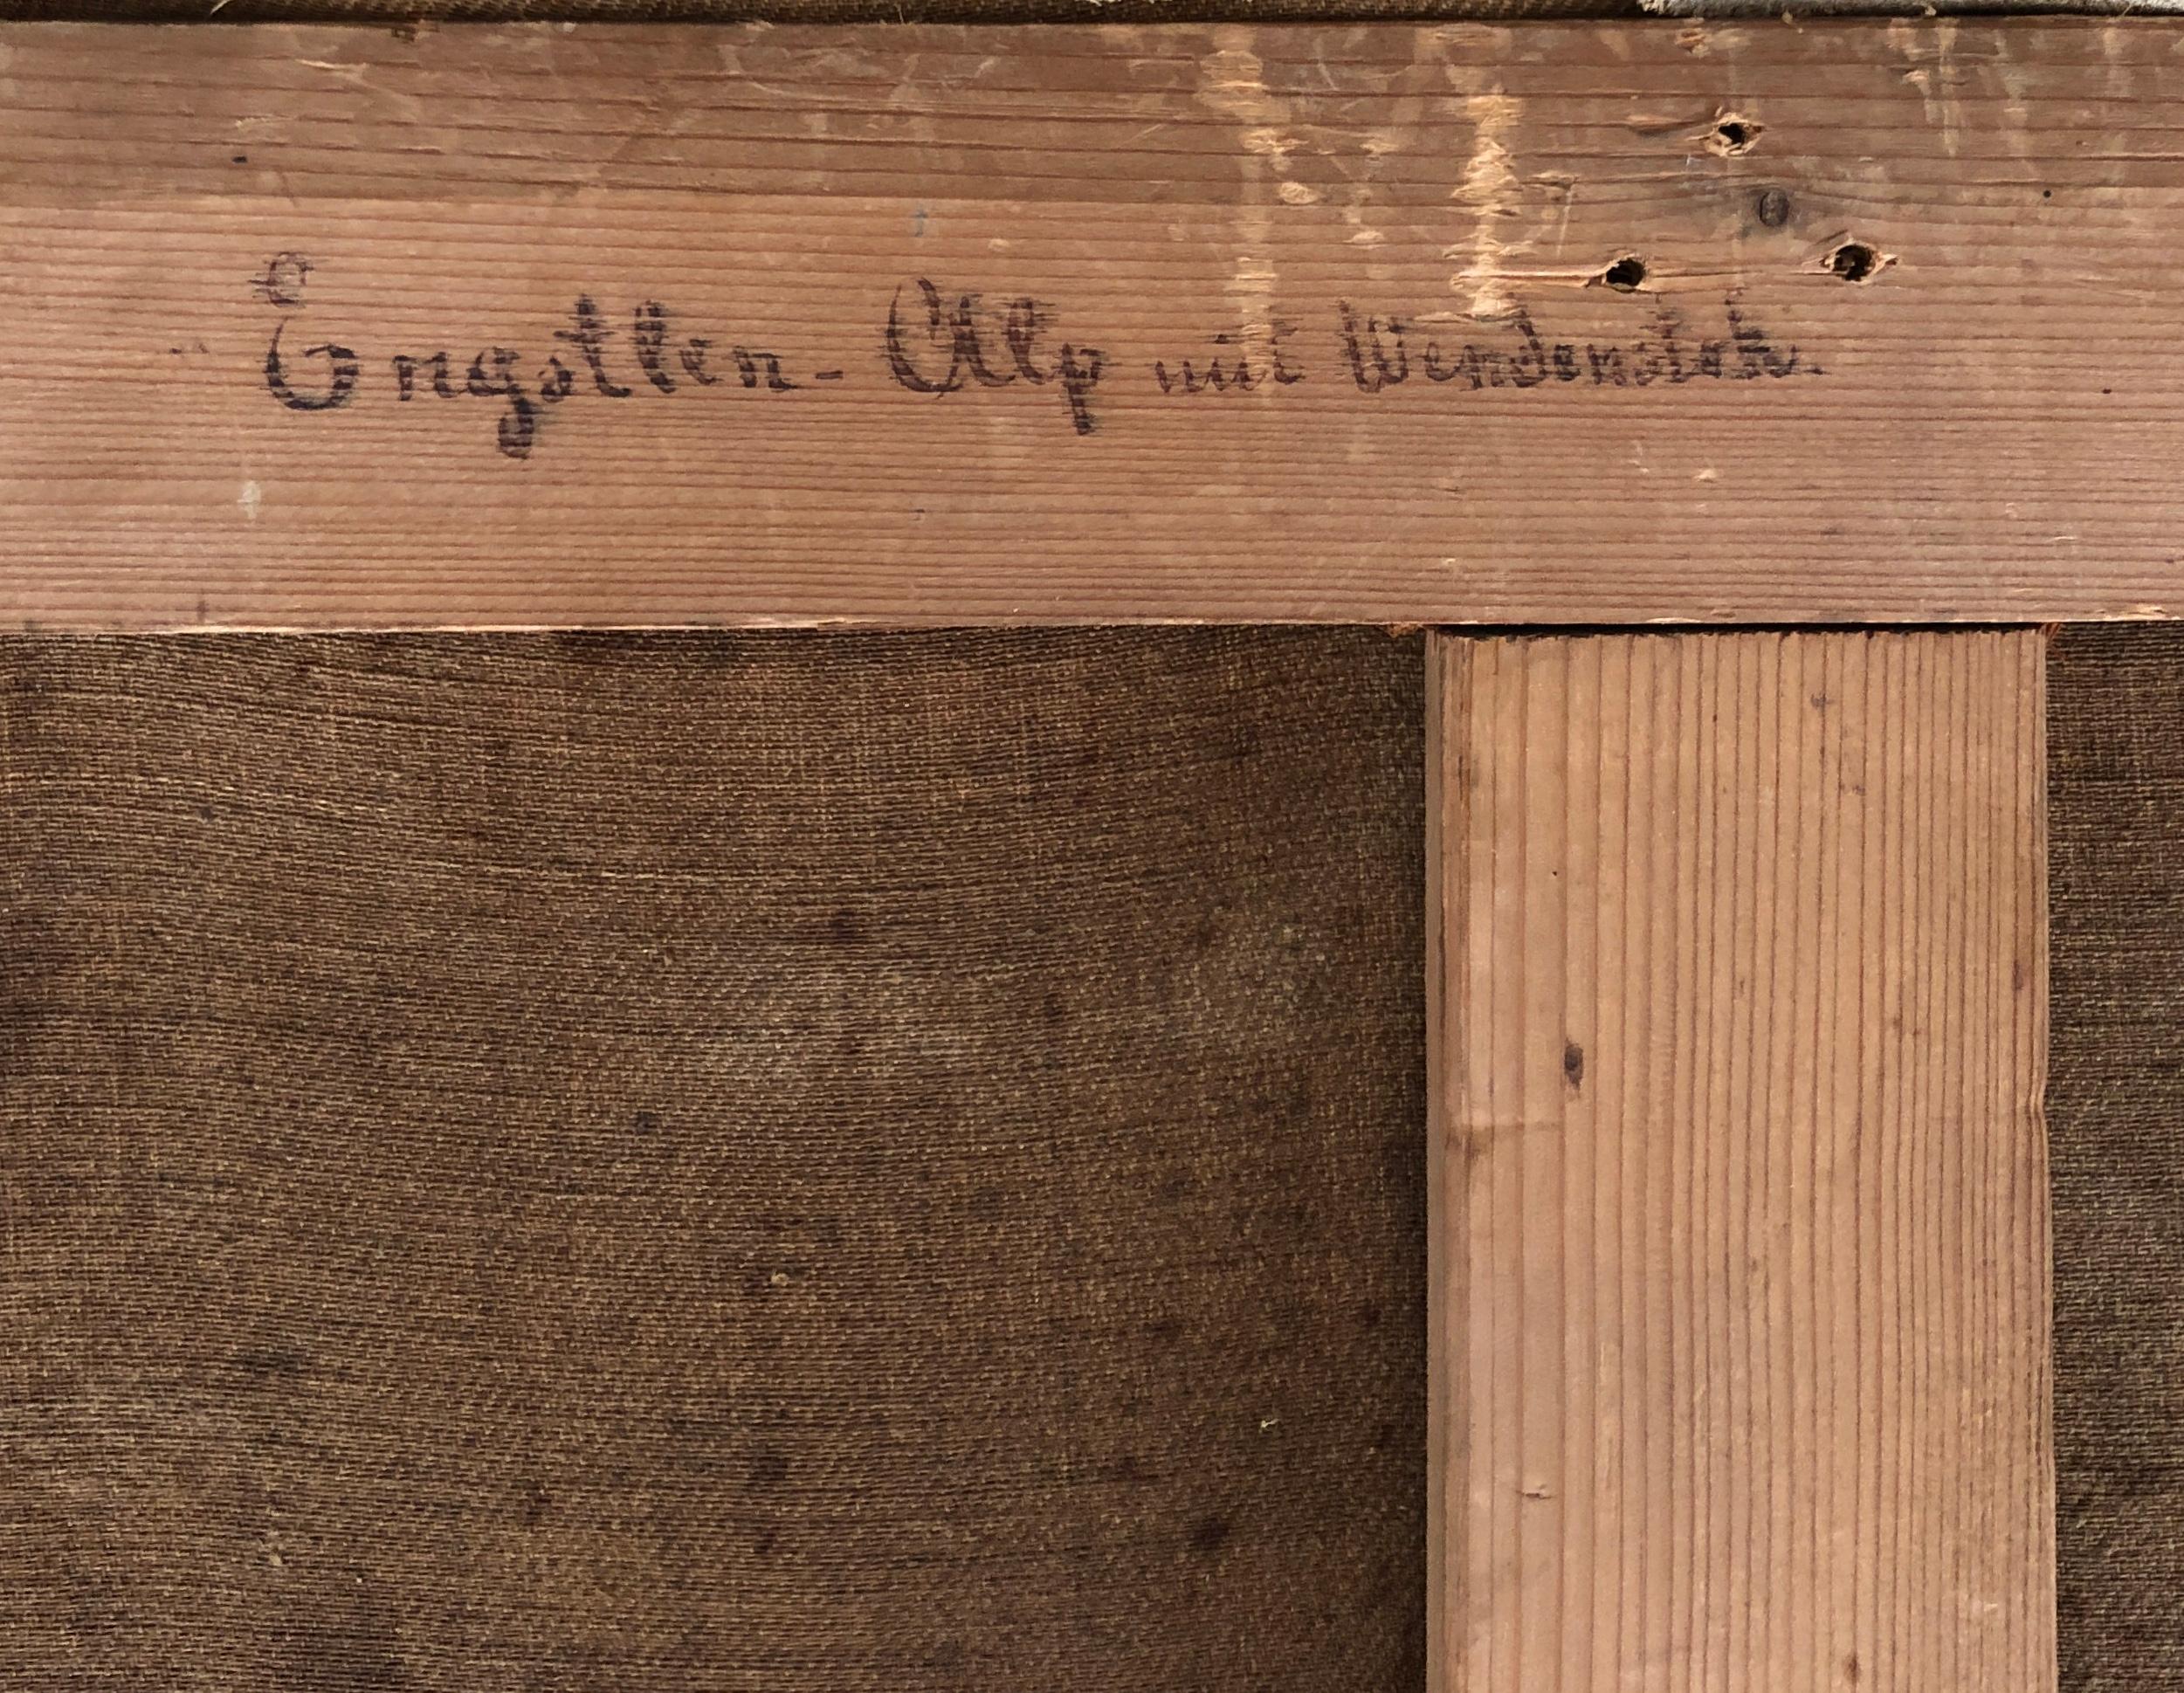 Engstlen-Alp mit Wendenstok.